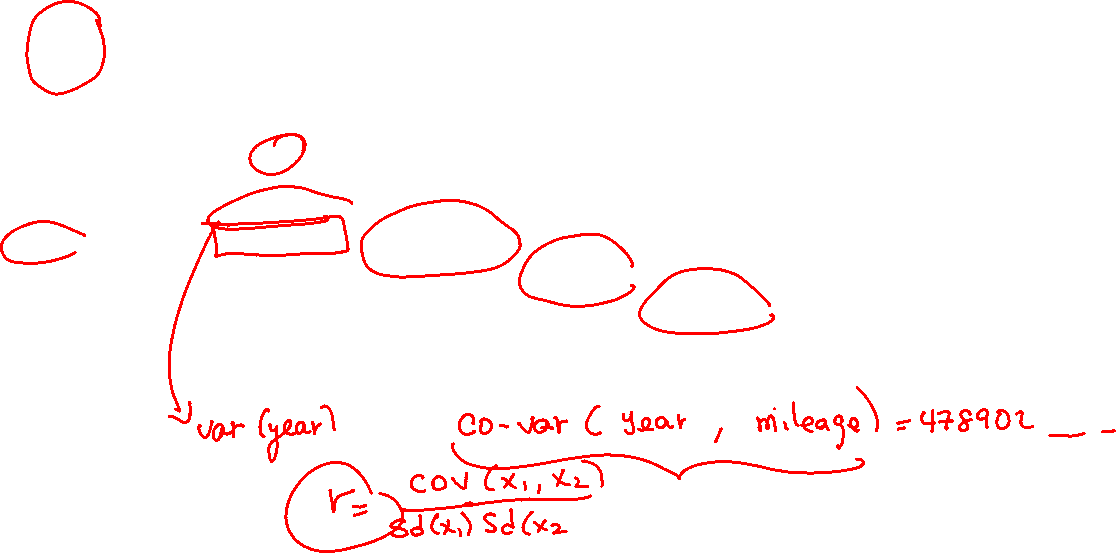 var (year)
co-var ( year , mileage ) = 478902 _ _
r = cov (x₁, x₂)
sd(x₁) sd(x₂